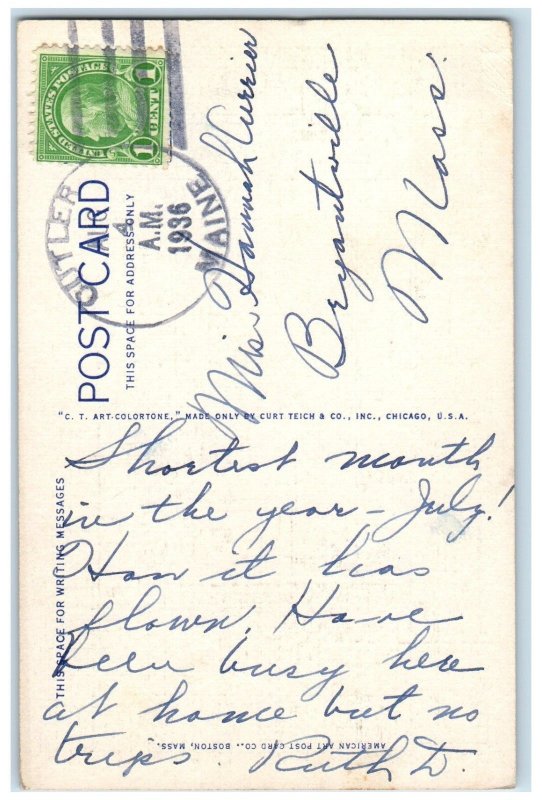 UNITED STATES POSTAGE
1 CENT 1
CUTLER
4
A.M.
1936
MAINE
POST CARD
THIS SPACE FOR ADDRESS ONLY
Miss Hannah Currier
Bryantville
Mass.
"C. T. ART-COLORTONE," MADE ONLY BY CURT TEICH & CO., INC., CHICAGO, U.S.A.
THIS SPACE FOR WRITING MESSAGES
Shortest month
in the year - July!
How it has
flown. Have
been busy here
at home but no
trips. Ruth D.
AMERICAN ART POST CARD CO., BOSTON, MASS.